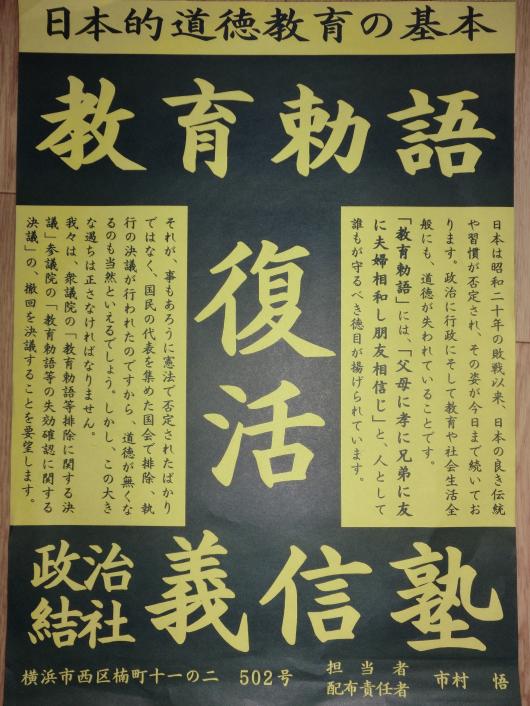 日本的道徳教育の基本
教育勅語
復活
日本は昭和二十年の敗戦以来、日本の良き伝統
や習慣が否定され、その姿が今日まで続いてお
ります。政治に行政にそして教育や社会生活全
般にも、道徳が失われていることです。
「教育勅語」には、「父母に孝に兄弟に友
に夫婦相和し朋友相信じ」と、人として
誰もが守るべき徳目が揚げられています。
それが、事もあろうに憲法で否定されたばかり
ではなく、国民の代表を集めた国会で排除、執
行の決議が行われたのですから、道徳が無くな
るのも当然といえるでしょう。しかし、この大き
な過ちは正さなければなりません。
我々は、衆議院の「教育勅語等排除に関する決
議」参議院の「教育勅語等の失効確認に関する
決議」の、撤回を決議することを要望します。
政治結社 義信塾
横浜市西区楠町十一の二 502号
担当者
配布責任者 市村 悟